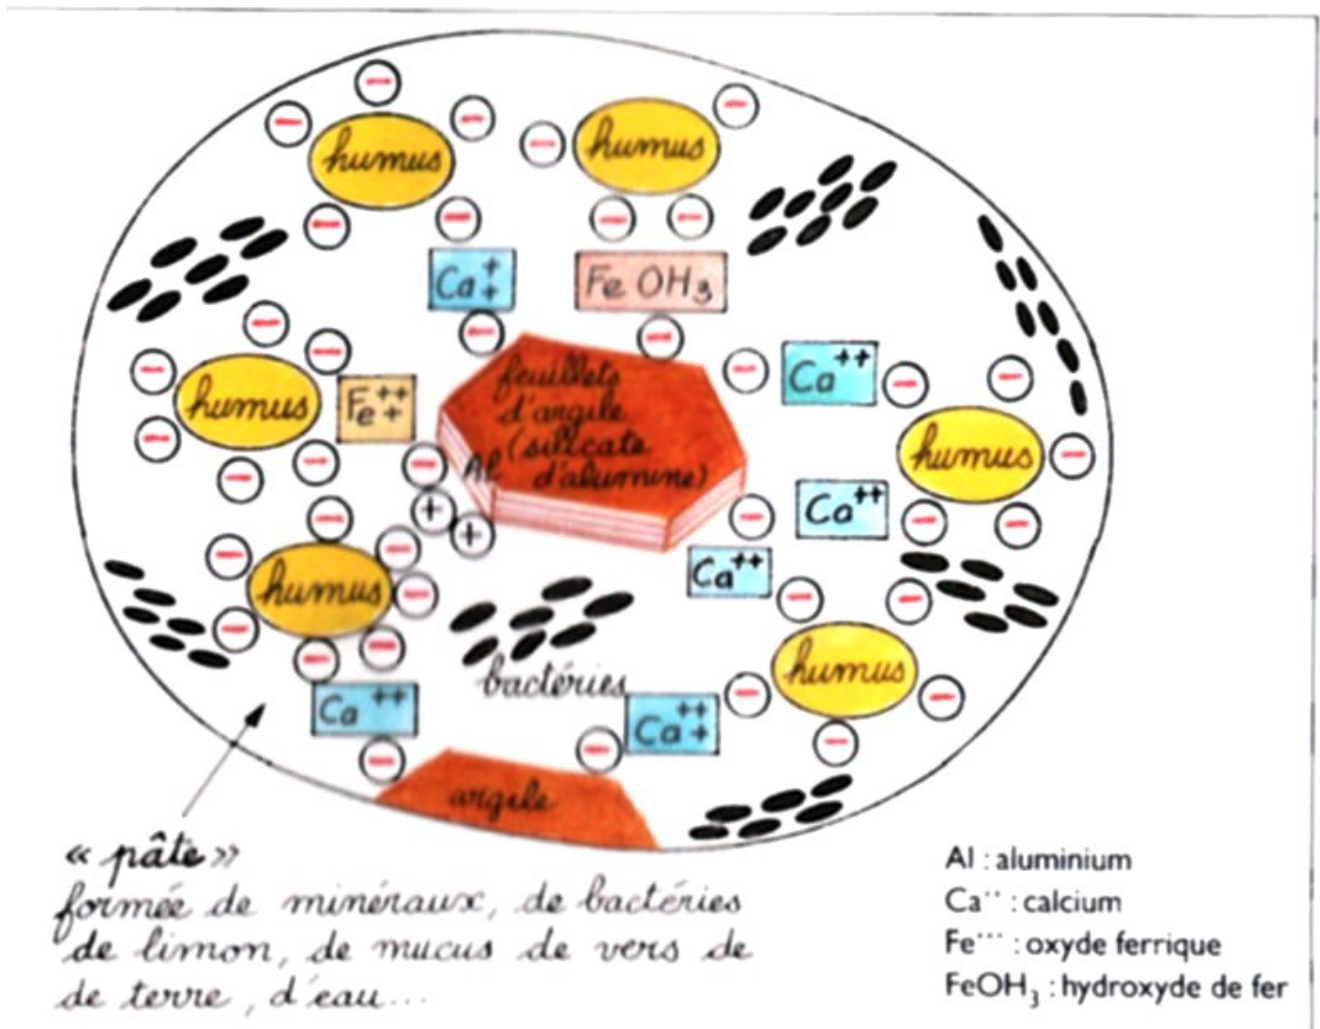 humus
humus
Ca++
Fe OH3
feuillets
d'argile
(silicate
d'alumine)
Al
Ca++
humus
Fe+++
humus
Ca++
Ca++
humus
humus
bactéries
Ca++
Ca+++
argile
« pâte »
formée de minéraux, de bactéries
de limon, de mucus de vers de
de terre, d'eau...
Al : aluminium
Ca·· : calcium
Fe··· : oxyde ferrique
FeOH3 : hydroxyde de fer